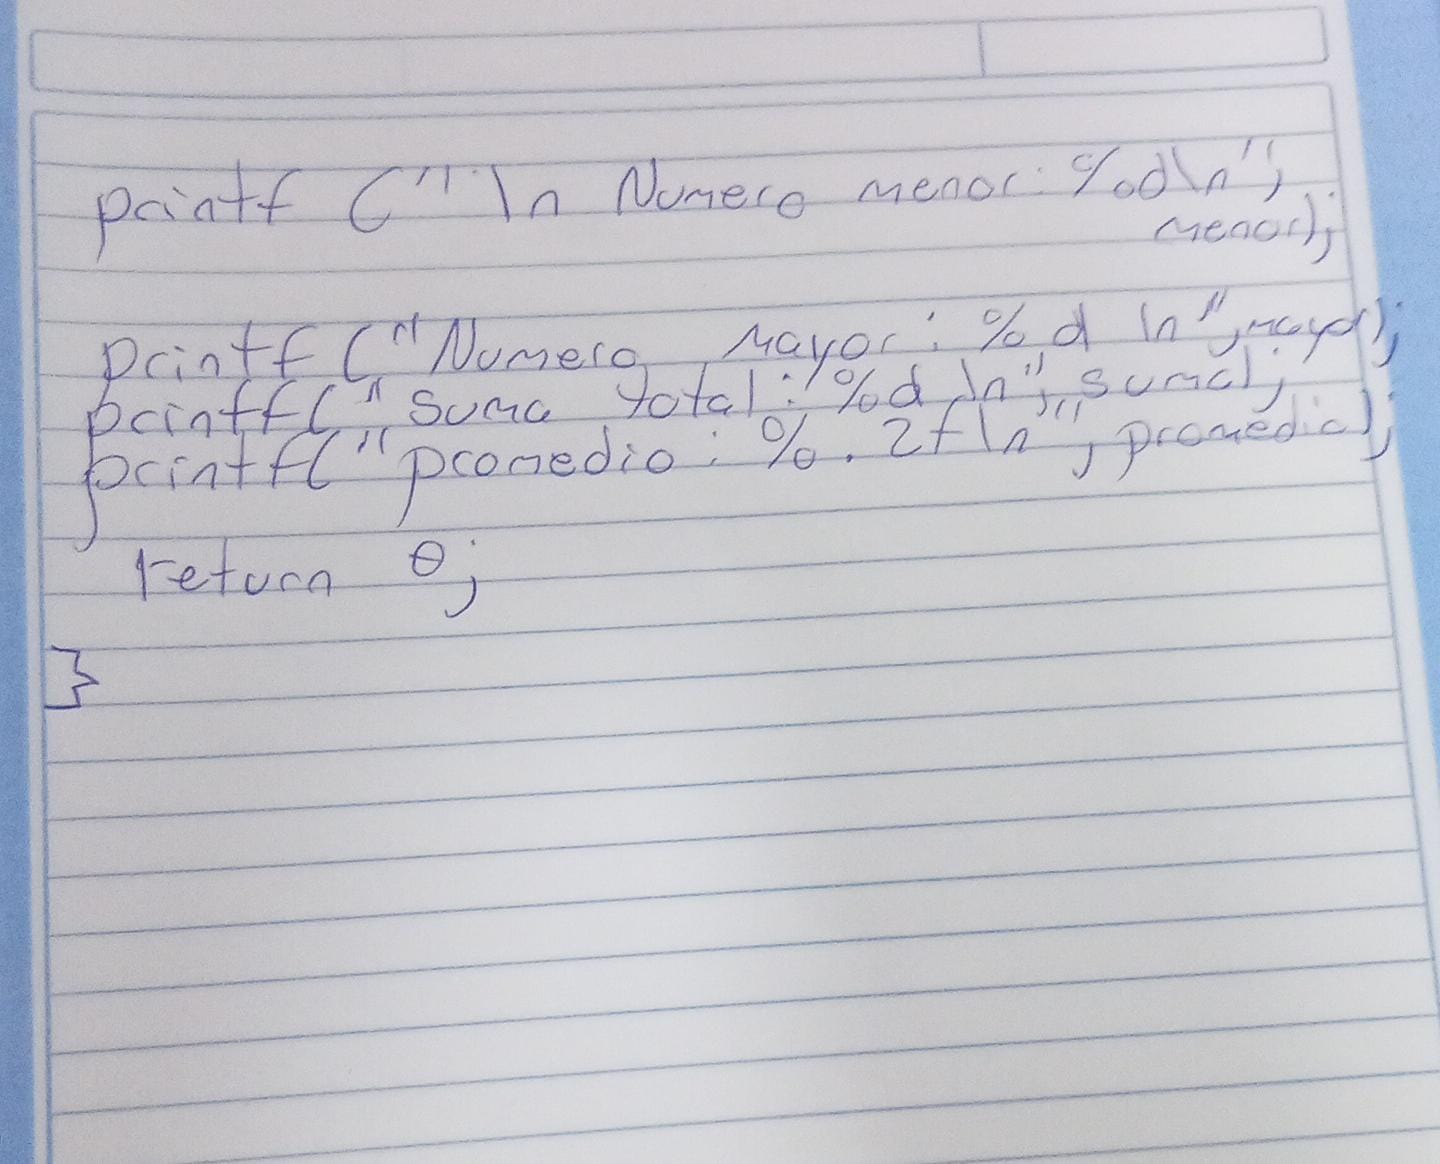 printf ("\n Numero menor: %d\n",
menor);
printf ("Numero Mayor: %d \n", mayor);
printf (" suma total: %d \n", suma);
printf (" promedio: %.2f\n", promedio);
return 0;
}